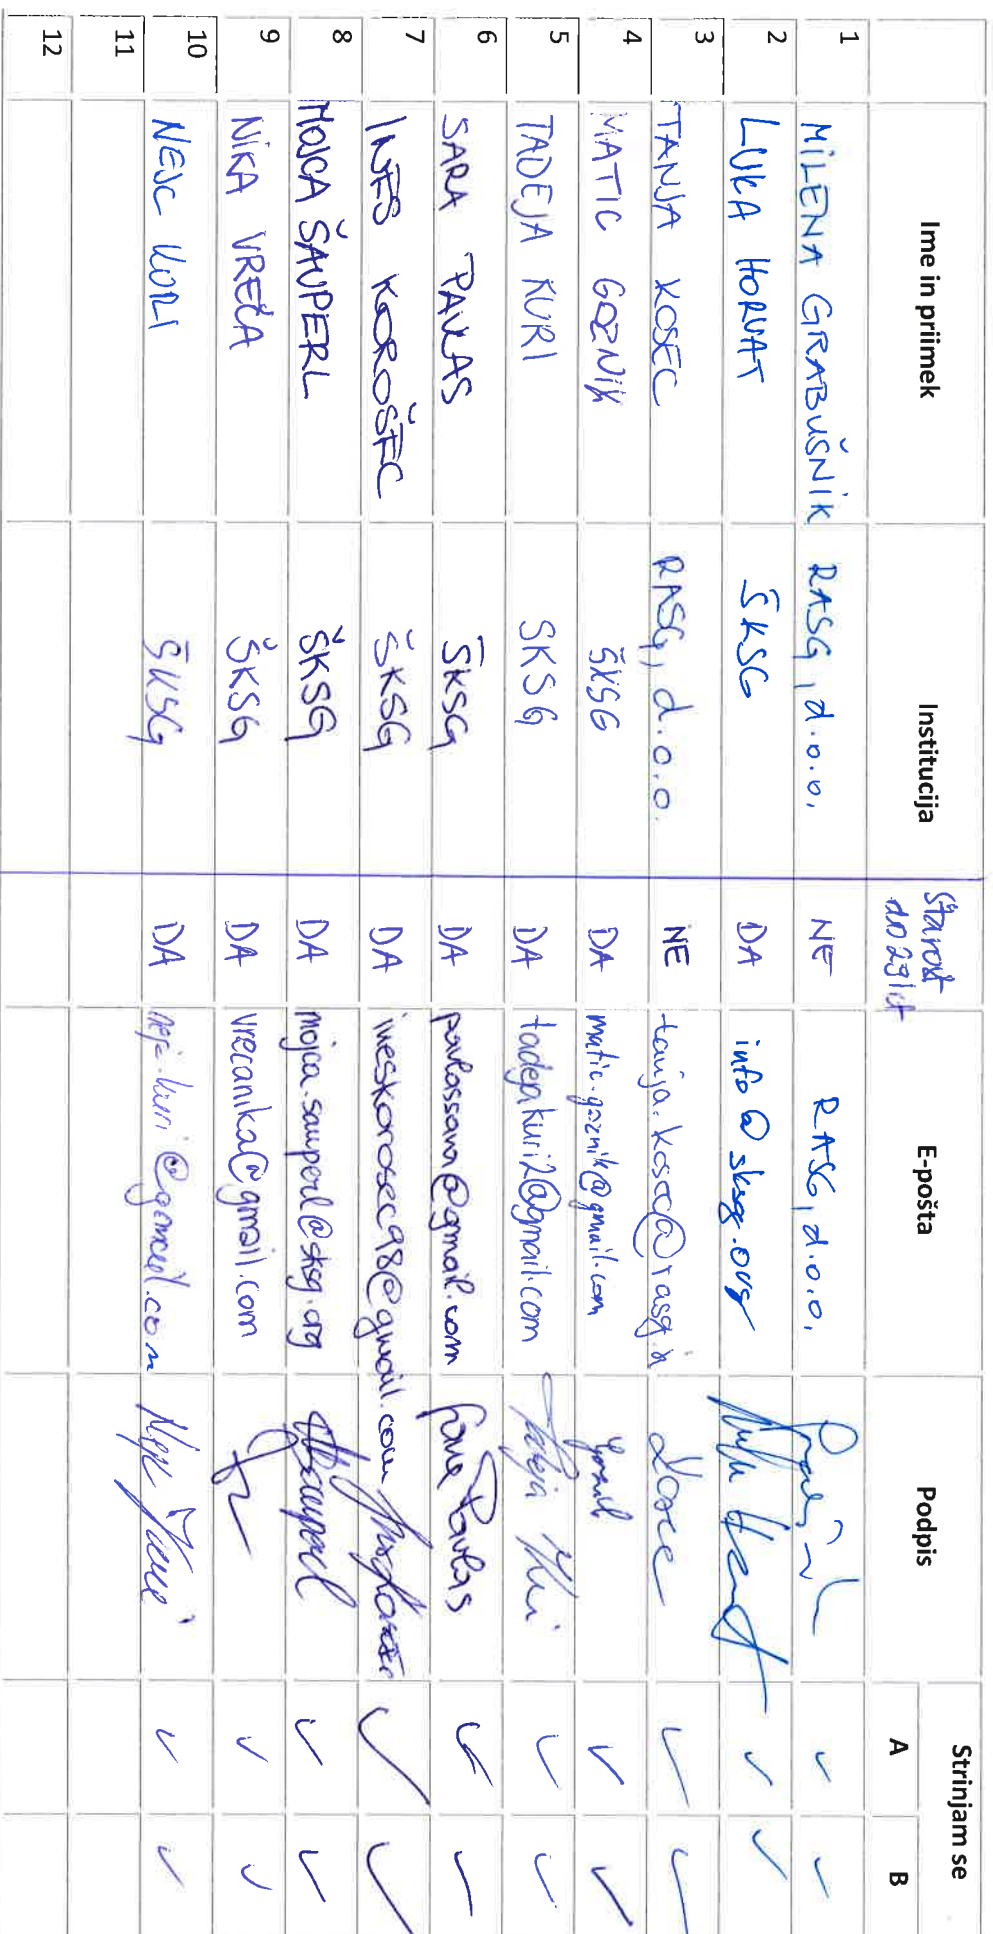 Ime in priimek Institucija Starost do 29 let E-pošta Podpis Strinjam se
A B
1 MILENA GRABUŠNIK RASG, d.o.o. NE RASG, d.o.o. ✓ ✓
2 LUKA HORVAT ŠKSG DA info@sksg.org Luka Horvat ✓ ✓
3 TANJA KOSEC RASG, d.o.o. NE tanja.kosec@rasg.si Kosec ✓ ✓
4 MATIC GOZNIK ŠKSG DA matic.goznik@gmail.com Goznik ✓ ✓
5 TADEJA KURI SKSG DA tadejakuri2@gmail.com Tadeja Kuri ✓ ✓
6 SARA PAVLAS ŠKSG DA pavlassara@gmail.com Sara Pavlas ✓ ✓
7 INES KOROŠEC ŠKSG DA ineskorosec98@gmail.com ✓ ✓
8 MOJCA ŠAUPERL ŠKSG DA mojca.sauperl@sksg.org MŠauperl ✓ ✓
9 NIKA VREČA ŠKSG DA vrecanika@gmail.com ✓ ✓
10 NEJC KURI ŠKSG DA nejc.kuri@gmail.com Nejc Kuri ✓ ✓
11
12